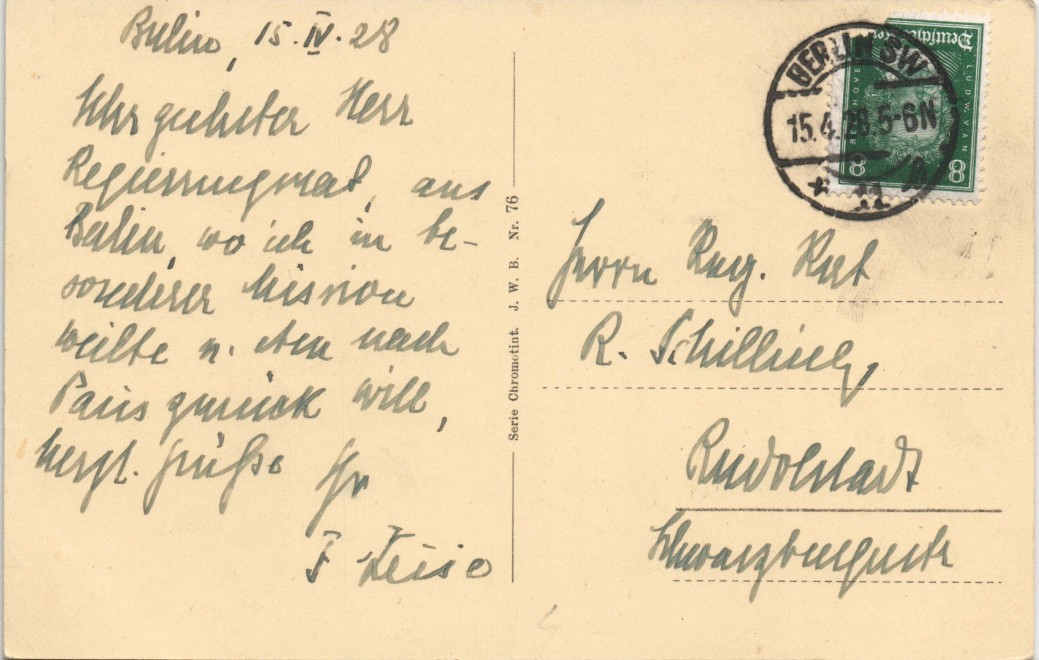 Berlin, 15. IV. 28
Sehr geehrter Herr
Regierungsrat, aus
Berlin, wo ich in be-
sonderer Mission
weilte u. eben nach
Paris zurück will,
herzl. Grüße Ihr
F
Serie Chromotint. J. W. B. Nr. 76
BERLIN SW
15.4.28.5-6N
* 11
Deutsches
LUDW. VAN
8 8
Herrn Reg. Rat
R. Schilling,
Rudolstadt
Schwarzburgerstr